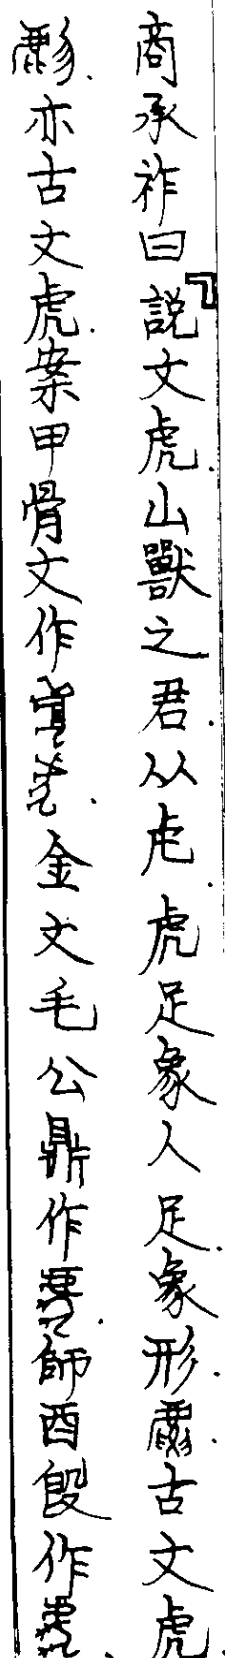 商承祚曰「説文虎.山獸之君.从虍.虎足象人足.象形.古文虎
亦古文虎.案甲骨文作.金文毛公鼎作.師酉𣪘作